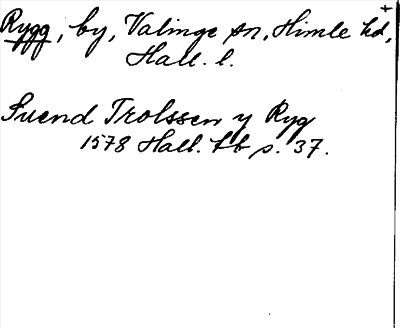 Rygg, by, Valinge sn, Himle hd,
Hall. l.
Suend Trolssen y Ryg
1578 Hall. tb s. 37.